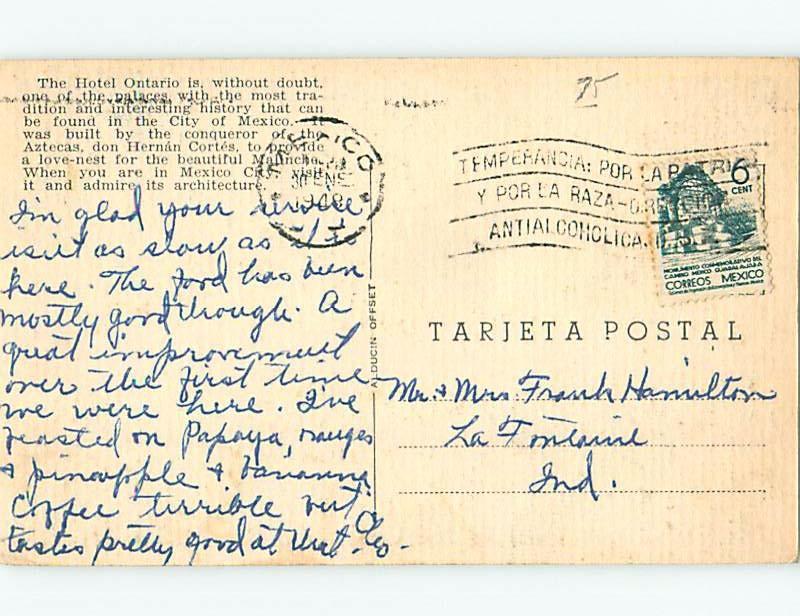 The Hotel Ontario is, without doubt,
one of the palaces with the most tra-
dition and interesting history that can
be found in the City of Mexico. It
was built by the conqueror of the
Aztecas, don Hernán Cortés, to provide
a love-nest for the beautiful Malinche.
When you are in Mexico City, visit
it and admire its architecture.
I'm glad your service
isn't as slow as it is
here. The food has been
mostly good though. A
great improvement
over the first time
we were here. I've
feasted on Papaya, oranges
& pineapple & bananna
Coffee terrible but
tastes pretty good at that. Cleo-
75
MEXICO
30 ENE
TEMPERANCIA: POR LA PATRIA
Y POR LA RAZA-DIRECCION
ANTIALCOHOLICA
6
CENT
MONUMENTO CONMEMORATIVO DEL
CAMINO MEXICO GUADALAJARA
CORREOS MEXICO
ALDUCIN OFFSET
TARJETA POSTAL
Mr. & Mrs. Frank Hamilton
La Fontaine
Ind.